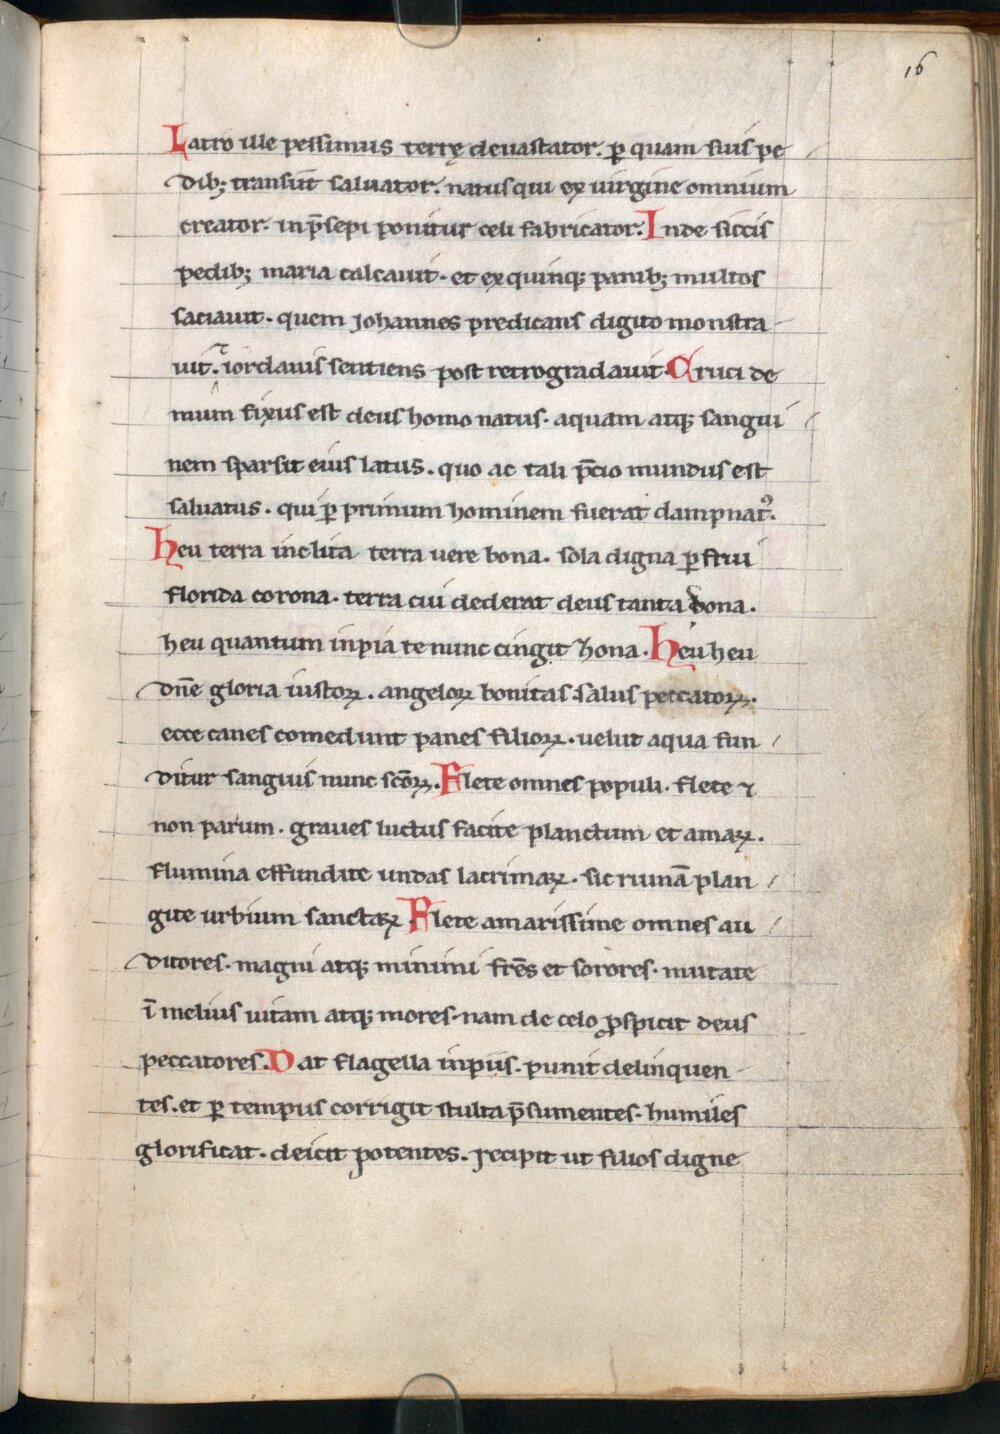 16
Latro ille pessimus terrę deuastator. ꝑ quam suis pe
dib; transiit saluator. natusqui ex uirgine omnium
creator. in p̄sepi ponitur celi fabricator. Inde siccis
pedib; maria calcauit. et ex quinq; panib; multos
saciauit. quem Johannes predicans digito monstra
uit. iordanis sentiens post retrogradauit. Cruci de
mum fixus est deus homo natus. aquam atq; sangui
nem sparsit eius latus. quo ac tali p̄cio mundus est
saluatus. qui ꝑ primum hominem fuerat dampnatꝰ.
heu terra inclita terra uere bona. sola digna ꝑfrui
florida corona. terra cui dederat deus tanta dona.
heu quantum inpia te nunc cingit zona. heu heu
dn̄e gloria iustoꝝ. angeloꝝ bonitas. salus peccatoꝝ.
ecce canes comedunt panes filioꝝ. uelut aqua fun
ditur sanguis nunc sc̄oꝝ. Flete omnes populi. flete ⁊
non parum. graues luctus facite planctum et amaꝝ.
flumina effundite undas lacrimaꝝ. sic ruinā plan
gite urbium sanctaꝝ. Flete amarissime omnes au
ditores. magni atq; minimi fr̄es et sorores. mutate
ī melius uitam atq; mores. nam de celo ꝓspicit deus
peccatores. Dat flagella inpiis. punit delinquen
tes. et ꝑ tempus corrigit stulta p̄sumentes. humiles
glorificat. deicit potentes. recipit ut filios digne